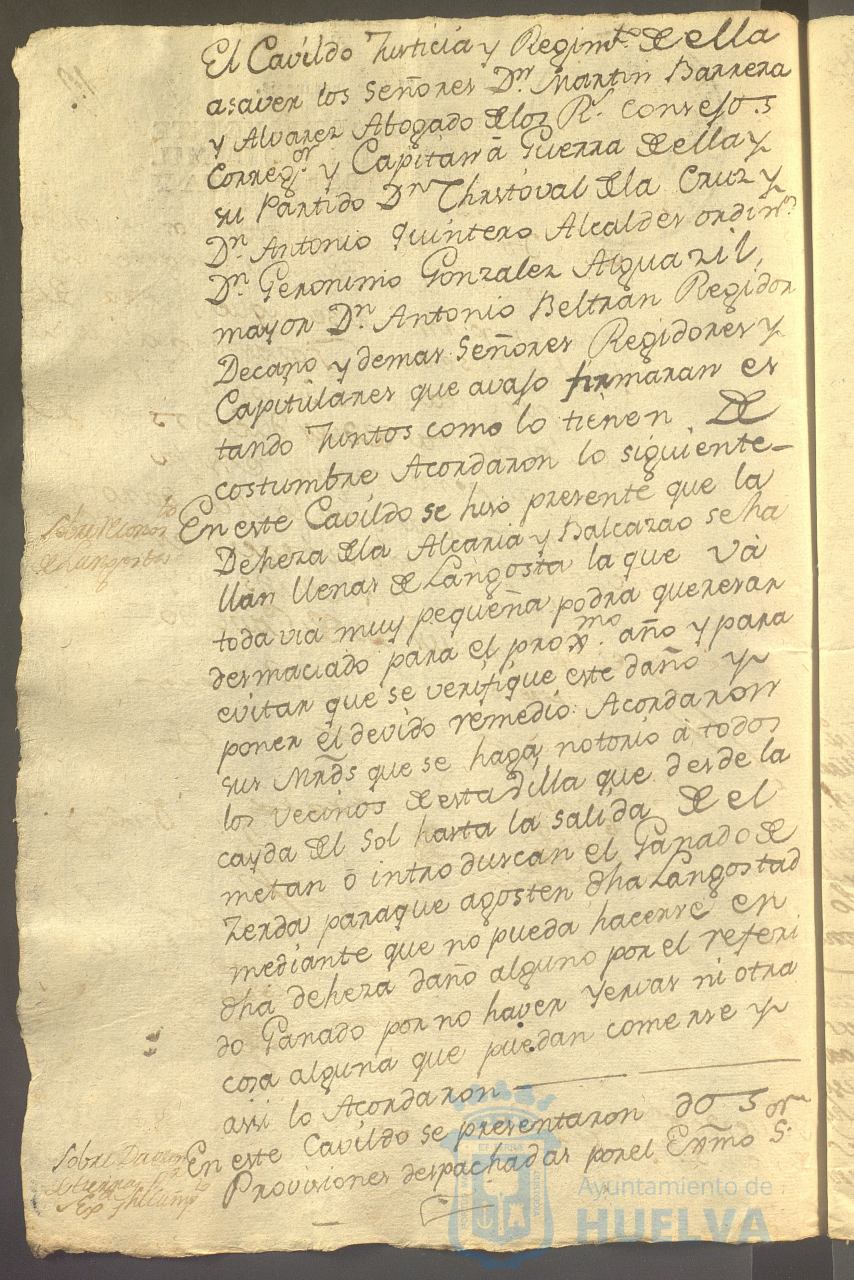 El Cavildo Justicia y Regimto. de ella
asaver los Señores Dn. Martin Barrera
y Alvarez Abogado delos Rs. Consejos
Corregor. y Capitan à Guerra de ella y
su Partido Dn. Christoval dela Cruz y
Dn. Antonio quintero Alcaldes ordins.
Dn. Geronimo Gonzalez Alguazil
mayor Dn. Antonio Beltran Regidor
Decano y demas Señores Regidores y
Capitulares que avajo firmaran es
tando Juntos como lo tienen de
costumbre Acordaron lo siguiente
En este Cavildo se hiso presente que la
Deheza dela Alcaria y Balcazao se ha
llan llenas de Langosta la que và
toda via muy pequeña podra queresar
desmaciado para el proxmo. año y para
evitar que se verifique este daño y
poner el devido remedio: Acordaron
sus Mrds que se haga notorio à todos
los vecinos de esta dilla que desde la
cayda del Sol hasta la salida de el
metan o introduscan el Ganado de
Zerda paraque agosten dha Langostad
mediante que no pueda hacerse en
dha deheza daño alguno por el referi
do Ganado por no haver Yervas ni otra
cosa alguna que puedan comerse y
assi lo Acordaron
En este Cavildo se presentaron dos
Provisiones despachadas por el Exmo Sor.
Sobre
de Langosta
Sobre
Ayuntamiento de
HUELVA